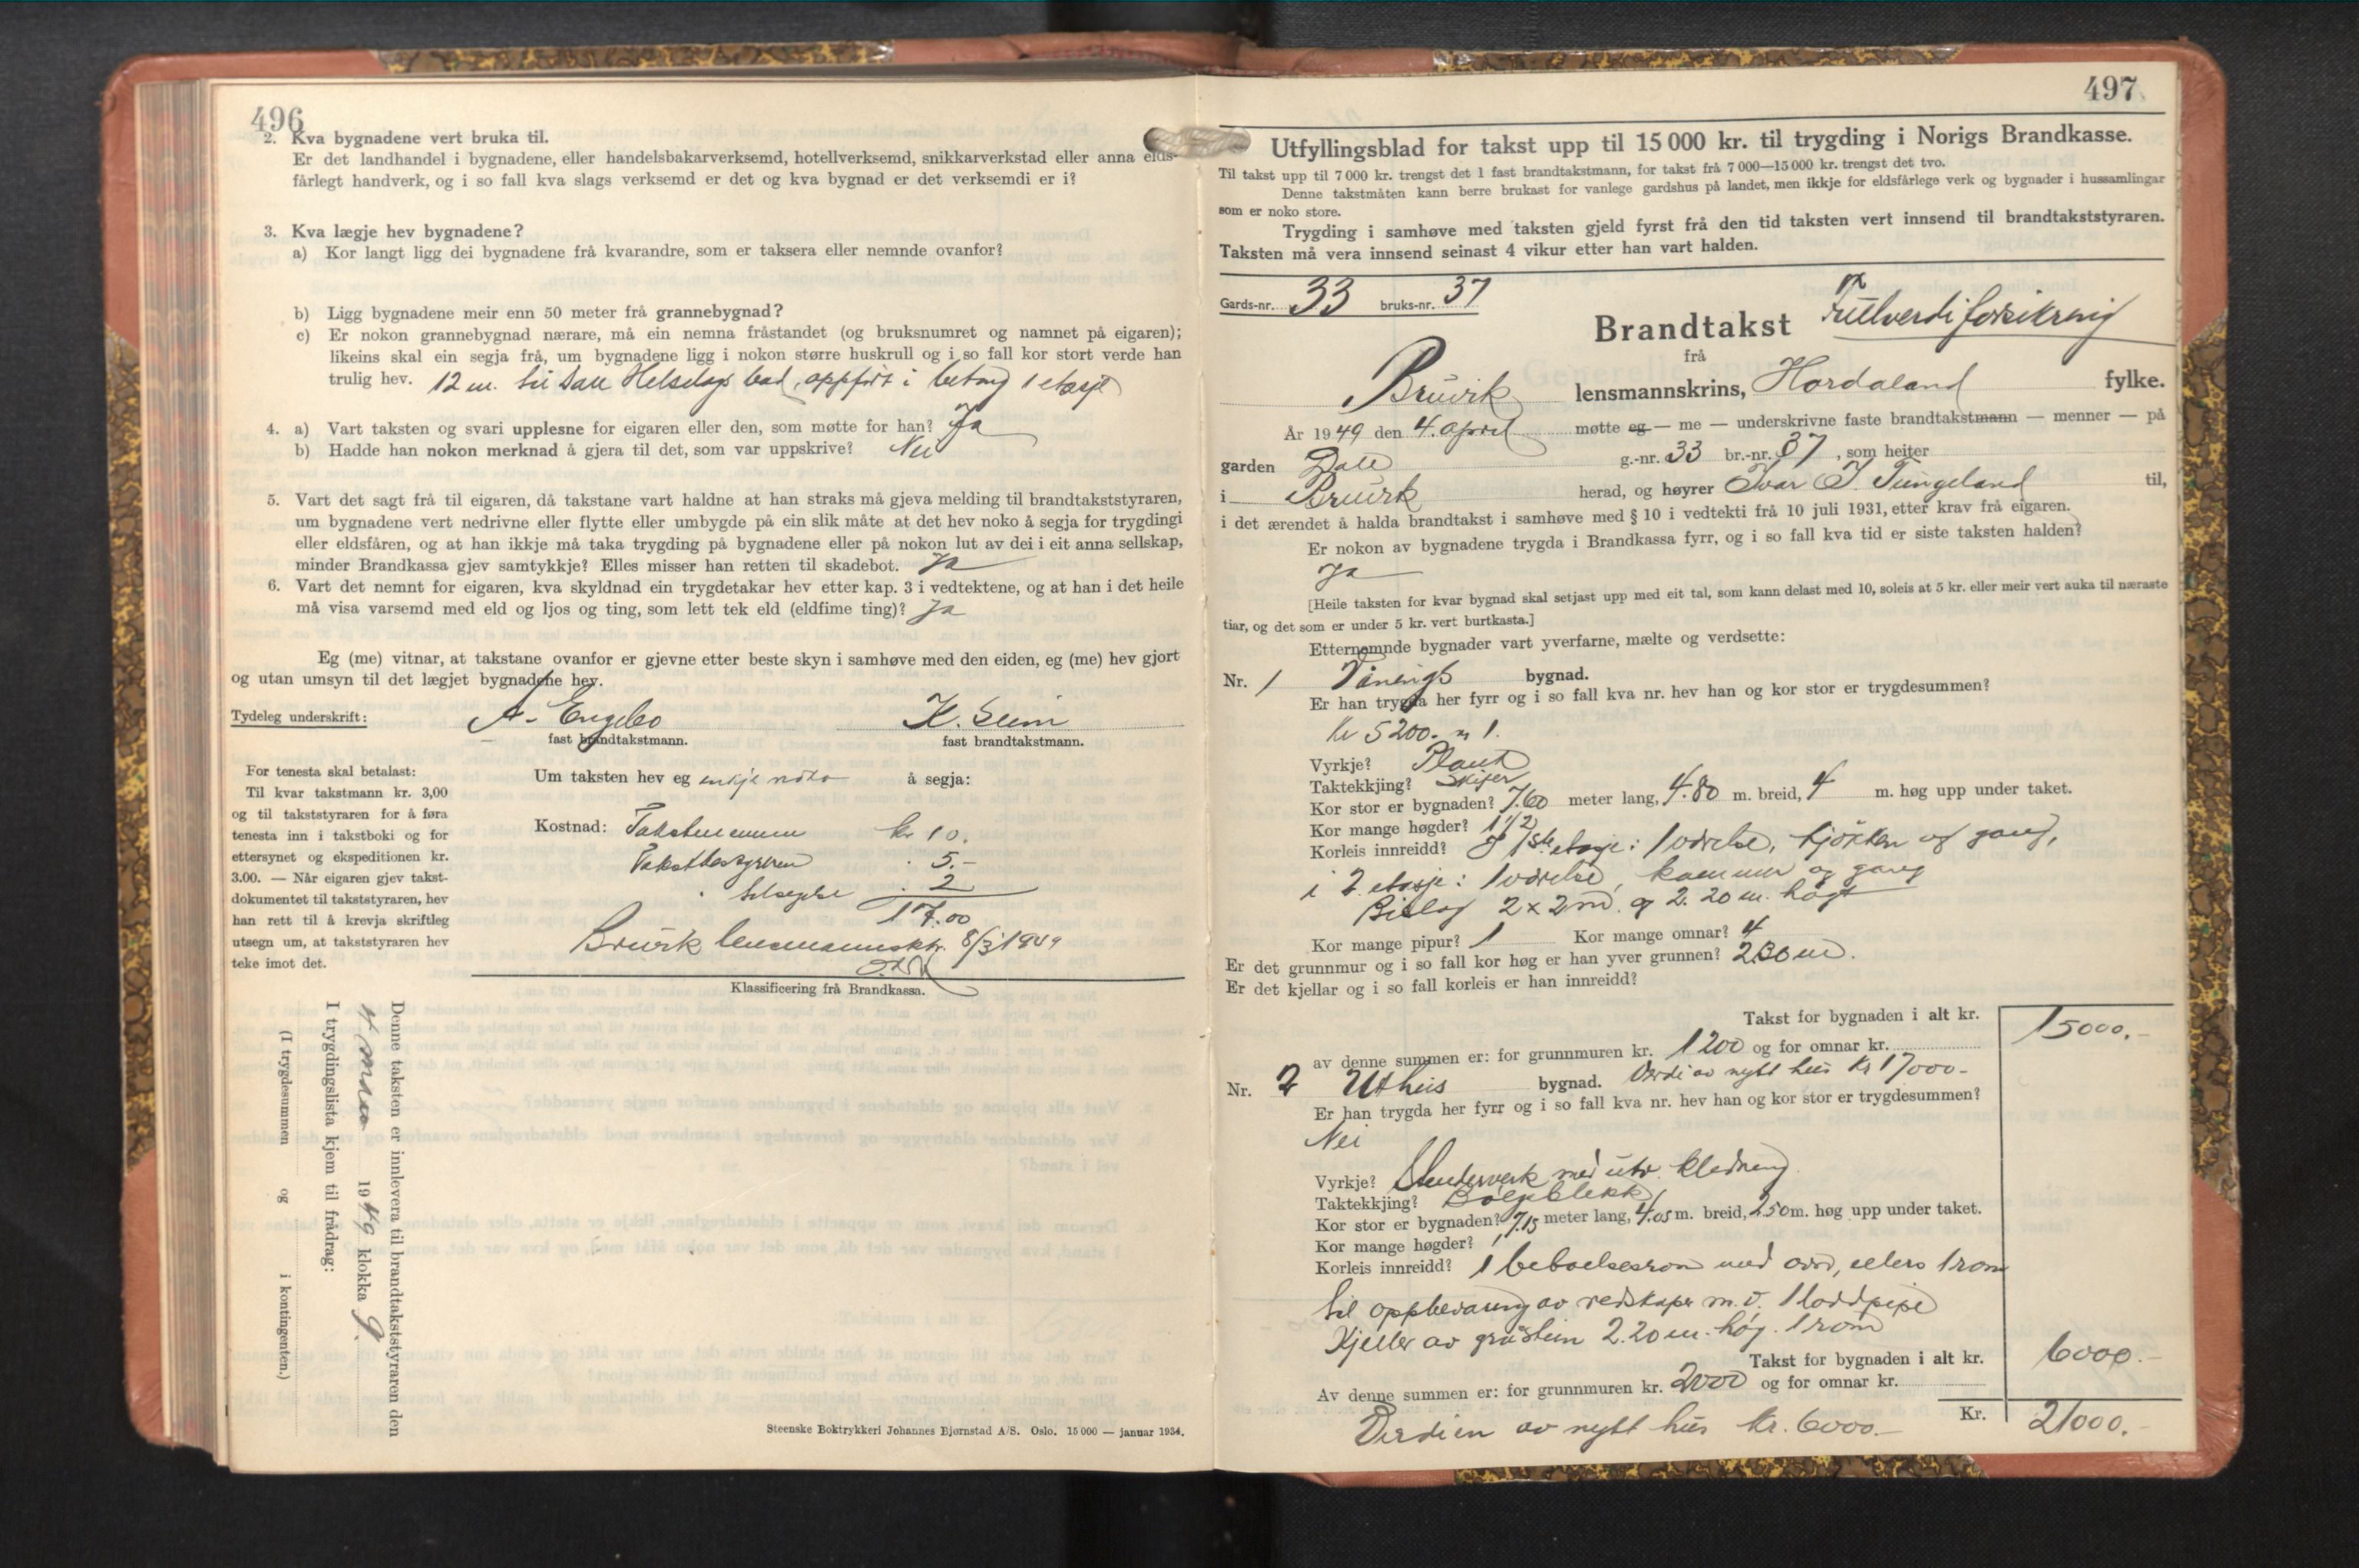 496
2. Kva bygnadene vert bruka til.
Er det landhandel i bygnadene, eller handelsbakarverksemd, hotellverksemd, snikkarverkstad eller anna elds-
fårlegt handverk, og i so fall kva slags verksemd er det og kva bygnad er det verksemdi er i?
3. Kva lægje hev bygnadene?
a) Kor langt ligg dei bygnadene frå kvarandre, som er taksera eller nemnde ovanfor?
b) Ligg bygnadene meir enn 50 meter frå grannebygnad?
c) Er nokon grannebygnad nærare, må ein nemna fråstandet (og bruksnumret og namnet på eigaren);
likeins skal ein segja frå, um bygnadene ligg i nokon større huskrull og i so fall kor stort verde han
trulig hev. 12 m. til Dale Helselags bad, oppført i betong 1 etasje
4. a) Vart taksten og svari upplesne for eigaren eller den, som møtte for han? Ja
b) Hadde han nokon merknad å gjera til det, som var uppskrive? Nei
5. Vart det sagt frå til eigaren, då takstane vart haldne at han straks må gjeva melding til brandtakststyraren,
um bygnadene vert nedrivne eller flytte eller umbygde på ein slik måte at det hev noko å segja for trygdingi
eller eldsfåren, og at han ikkje må taka trygding på bygnadene eller på nokon lut av dei i eit anna sellskap,
minder Brandkassa gjev samtykkje? Elles misser han retten til skadebot. Ja
6. Vart det nemnt for eigaren, kva skyldnad ein trygdetakar hev etter kap. 3 i vedtektene, og at han i det heile
må visa varsemd med eld og ljos og ting, som lett tek eld (eldfime ting)? Ja
Eg (me) vitnar, at takstane ovanfor er gjevne etter beste skyn i samhøve med den eiden, eg (me) hev gjort
og utan umsyn til det lægjet bygnadene hev.
Tydeleg underskrift: A. Engebo K. Seim
fast brandtakstmann. fast brandtakstmann.
For tenesta skal betalast:
Til kvar takstmann kr. 3,00
og til takststyraren for å føra
tenesta inn i takstboki og for
ettersynet og ekspeditionen kr.
3.00. — Når eigaren gjev takst-
dokumentet til takststyraren, hev
han rett til å krevja skriftleg
utsegn um, at takststyraren hev
teke imot det.
Um taksten hev eg inkje noko å segja:
Kostnad: Takstmennene kr 10.
Takstbestyreren . 5.-
. 2
17.00
Bruvik lensmannsktr. 8/3 1949
Klassificering frå Brandkassa.
Denne taksten er innlevera til brandtakststyraren den
4 mars 1949 klokka 9.
I trygdingslista kjem til frådrag:
(I trygdesummen og i kontingenten.)
Steenske Boktrykkeri Johannes Bjørnstad A/S. Oslo. 15 000 — januar 1934.
497
Utfyllingsblad for takst upp til 15 000 kr. til trygding i Norigs Brandkasse.
Til takst upp til 7 000 kr. trengst det 1 fast brandtakstmann, for takst frå 7 000—15 000 kr. trengst det tvo.
Denne takstmåten kann berre brukast for vanlege gardshus på landet, men ikkje for eldsfårlege verk og bygnader i hussamlingar
som er noko store.
Trygding i samhøve med taksten gjeld fyrst frå den tid taksten vert innsend til brandtakststyraren.
Taksten må vera innsend seinast 4 vikur etter han vart halden.
Gards-nr. 33 bruks-nr. 37
Brandtakst Fullverdiforsikring
frå
Bruvik lensmannskrins, Hordaland fylke.
År 1949 den 4. april møtte eg — me — underskrivne faste brandtakstmann — menner — på
garden Dale g.-nr. 33 br.-nr. 37, som heiter
i Bruvik herad, og høyrer Ivar J. Tungeland til,
i det ærendet å halda brandtakst i samhøve med § 10 i vedtekti frå 10 juli 1931, etter krav frå eigaren.
Er nokon av bygnadene trygda i Brandkassa fyrr, og i so fall kva tid er siste taksten halden?
Ja
[Heile taksten for kvar bygnad skal setjast upp med eit tal, som kann delast med 10, soleis at 5 kr. eller meir vert auka til næraste
tiar, og det som er under 5 kr. vert burtkasta.]
Etternemnde bygnader vart yverfarne, mælte og verdsette:
Nr. 1 Vånings bygnad.
Er han trygda her fyrr og i so fall kva nr. hev han og kor stor er trygdesummen?
kr 5200.- n 1.
Vyrkje? Plank
Taktekkjing? Skifer
Kor stor er bygnaden? 7.60 meter lang, 4.80 m. breid, 4 m. høg upp under taket.
Kor mange høgder? 1 1/2
Korleis innreidd? I 1ste etasje: 1 værelse, kjøkken og gang,
i 2. etasje: 1 værelse, kammer og gang
Bislag 2 x 2 m. og 2.20 m. høgt
Kor mange pipur? 1 Kor mange omnar? 4
Er det grunnmur og i so fall kor høg er han yver grunnen? 2.30 m.
Er det kjellar og i so fall korleis er han innreidd?
Takst for bygnaden i alt kr. 15000.-
av denne summen er: for grunnmuren kr. 1200 og for omnar kr.
Nr. 2 Uthus bygnad. Verdi av nytt hus kr 17000-
Er han trygda her fyrr og i so fall kva nr. hev han og kor stor er trygdesummen?
Nei
Vyrkje? Stenderverk med utv. kledning.
Taktekkjing? Bølgeblekk
Kor stor er bygnaden? 7.15 meter lang, 4.05 m. breid, 2.50 m. høg upp under taket.
Kor mange høgder? 1
Korleis innreidd? 1 beboelsesrom med ovn, ellers 1 rom
til oppbevaring av redskaper m.v. 1 loddpipe
Kjeller av gråstein 2.20 m. høg. 1 rom
Takst for bygnaden i alt kr. 6000.-
Av denne summen er: for grunnmuren kr. 2000 og for omnar kr.
Verdien av nytt hus kr. 6000.- Kr. 21000.-